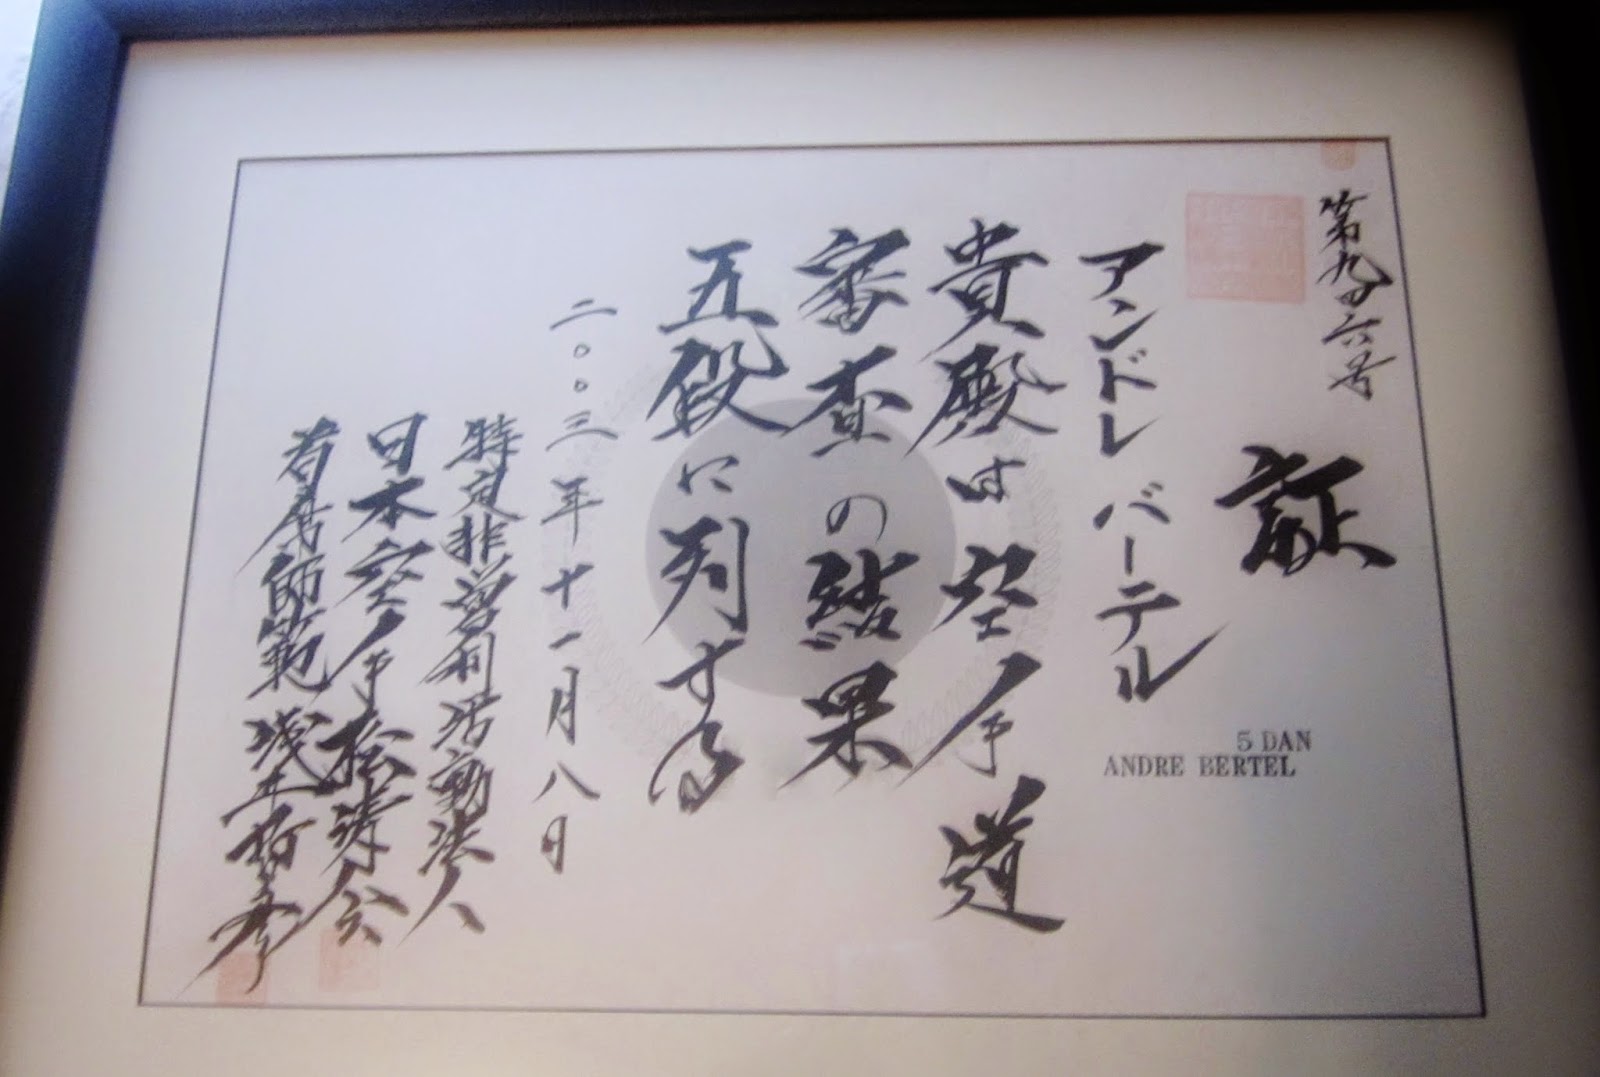 第九四六号
証
アンドレ バーテル
5 DAN
ANDRE BERTEL
貴殿は空手道
審査の結果
五段に列する
二〇〇三年十一月八日
特定非営利活動法人
日本空手松涛会
首席師範 浅井哲彦